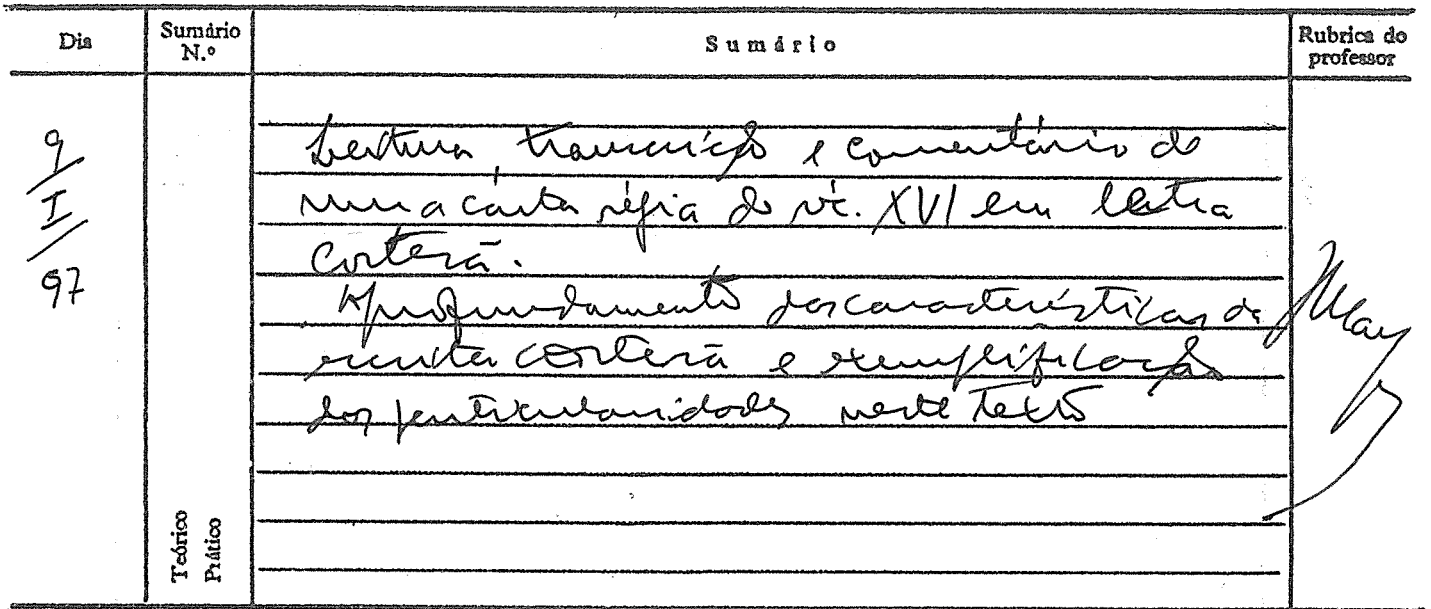 Dia
Sumário N.º
Sumário
Rubrica do professor
9/I/97
Leitura, transcrição e comentário de
uma carta régia do séc. XVI em letra
cortesã.
Aprofundamento das características da
escrita cortesã e exemplificação
das particularidades neste texto
Teórico
Prático